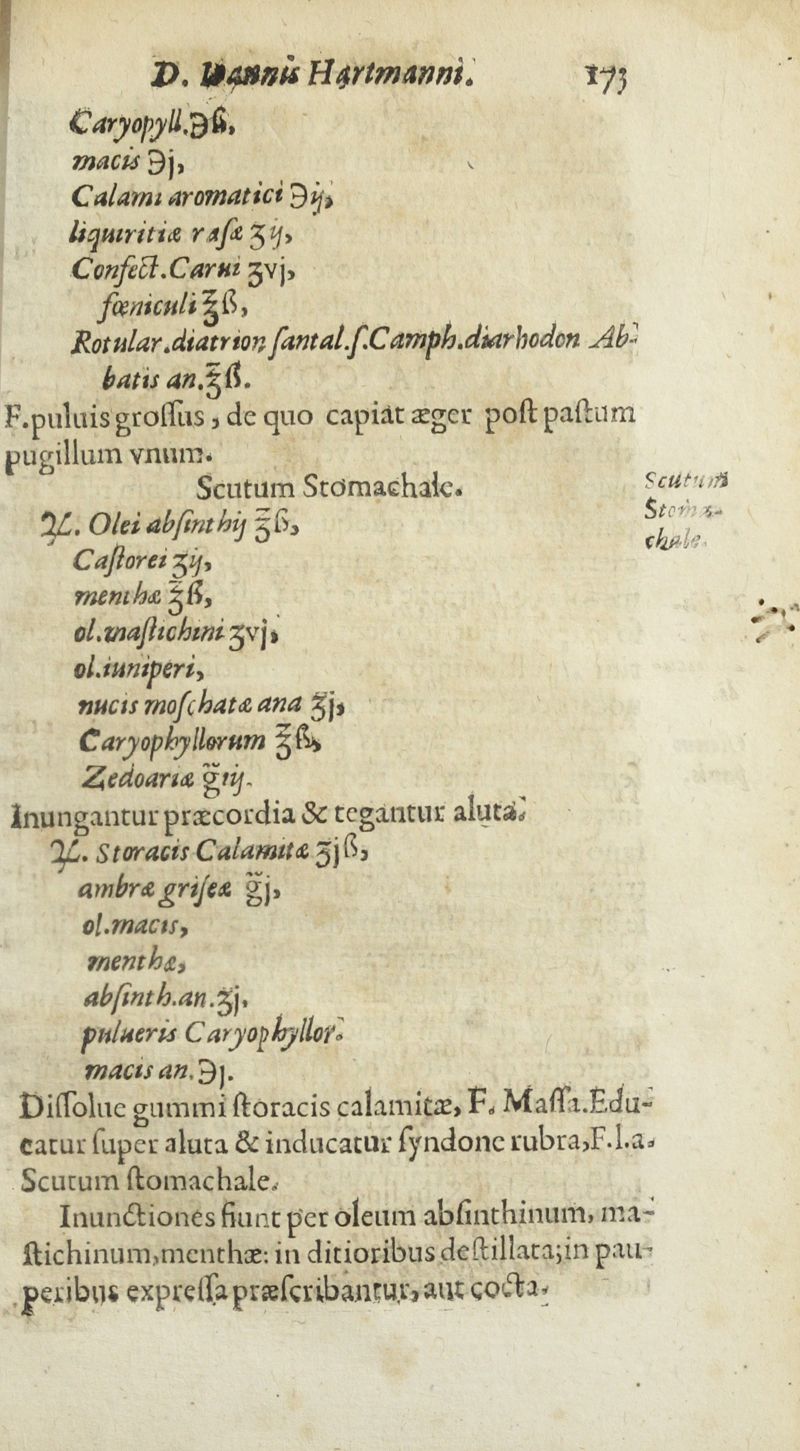 D. Iōannis Hartmanni. 173
Caryopyll.℈ß,
macis ℈j,
Calami aromatici ℈ij,
liquiritiæ rasæ ʒij,
Confect.Carui ʒvj,
fœniculi ℥ß,
Rotular.diatrion santal.ſ.Camph.diarhodon Ab-
batis an.℥ß.
F.puluis grossus, de quo capiat æger post pastum
pugillum vnum.
Scutum Stomachale.
Scutum
Stoma-
chale.
♃. Olei absinthij ℥ß,
Castorei ʒij,
menthæ ℥ß,
ol.mastichini ʒvj,
ol.iuniperi,
nucis moschatæ ana ℥j,
Caryophyllorum ℥ß,
Zedoariæ gtij.
Inungantur præcordia & tegantur aluta.
♃. Storacis Calamitæ ʒjß,
ambræ griseæ gj,
ol.macis,
menthæ,
absinth.an.ʒj,
pulueris Caryophyllor.
macis an.℈j.
Dissolue gummi storacis calamitæ, F. Massa.Edu-
catur super aluta & inducatur syndone rubra,F.l.a.
Scutum stomachale.
Inunctiones fiunt per oleum absinthinum, ma-
stichinum,menthæ: in ditioribus destillata;in pau-
peribus expressa præscribantur, aut cocta.